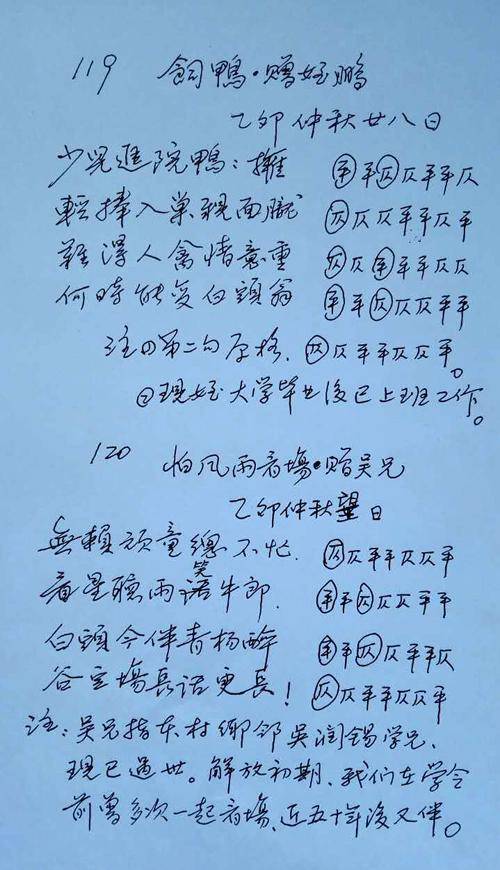 119 飼鴨·赠姪鵬
乙卯仲秋廿八日
少児進院鴨:擁 ㊉平仄仄平平仄
輕捧入巢親面朧 仄仄仄平平仄平
難得人禽情意重 仄仄平平平仄仄
何時能复白頭翁 平平仄仄仄平平
注①第二句原格.仄仄平平仄仄平。
②現姪大学毕业後已上班工作。
120 怕风雨看場·赠吴兄
乙卯仲秋望日
無賴頑童總不忙. 仄仄平平仄仄平
看星聽雨笑語牛郎. 平平仄仄仄平平
白頭今伴青杨醉 平平仄仄平平仄
谷宝場長话更長! 仄仄平平仄仄平
注:吴兄指本村鄉邻吴润锡学兄、
現已過世。解放初期、我们在学会
前曾多次一起看場、近五十年後又伴。